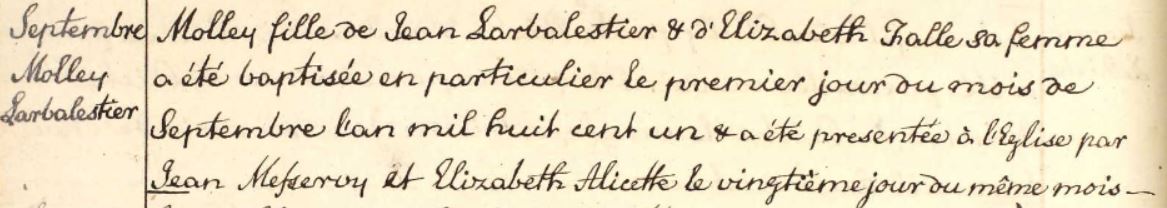 Septembre
Molley
Larbalestier
Molley fille de Jean Larbalestier & d'Elizabeth Falle sa femme
a été baptisée en particulier le premier jour du mois de
Septembre l'an mil huit cent un & a été presentée à l'Eglise par
Jean Messervy et Elizabeth Alicette le vingtième jour du même mois —